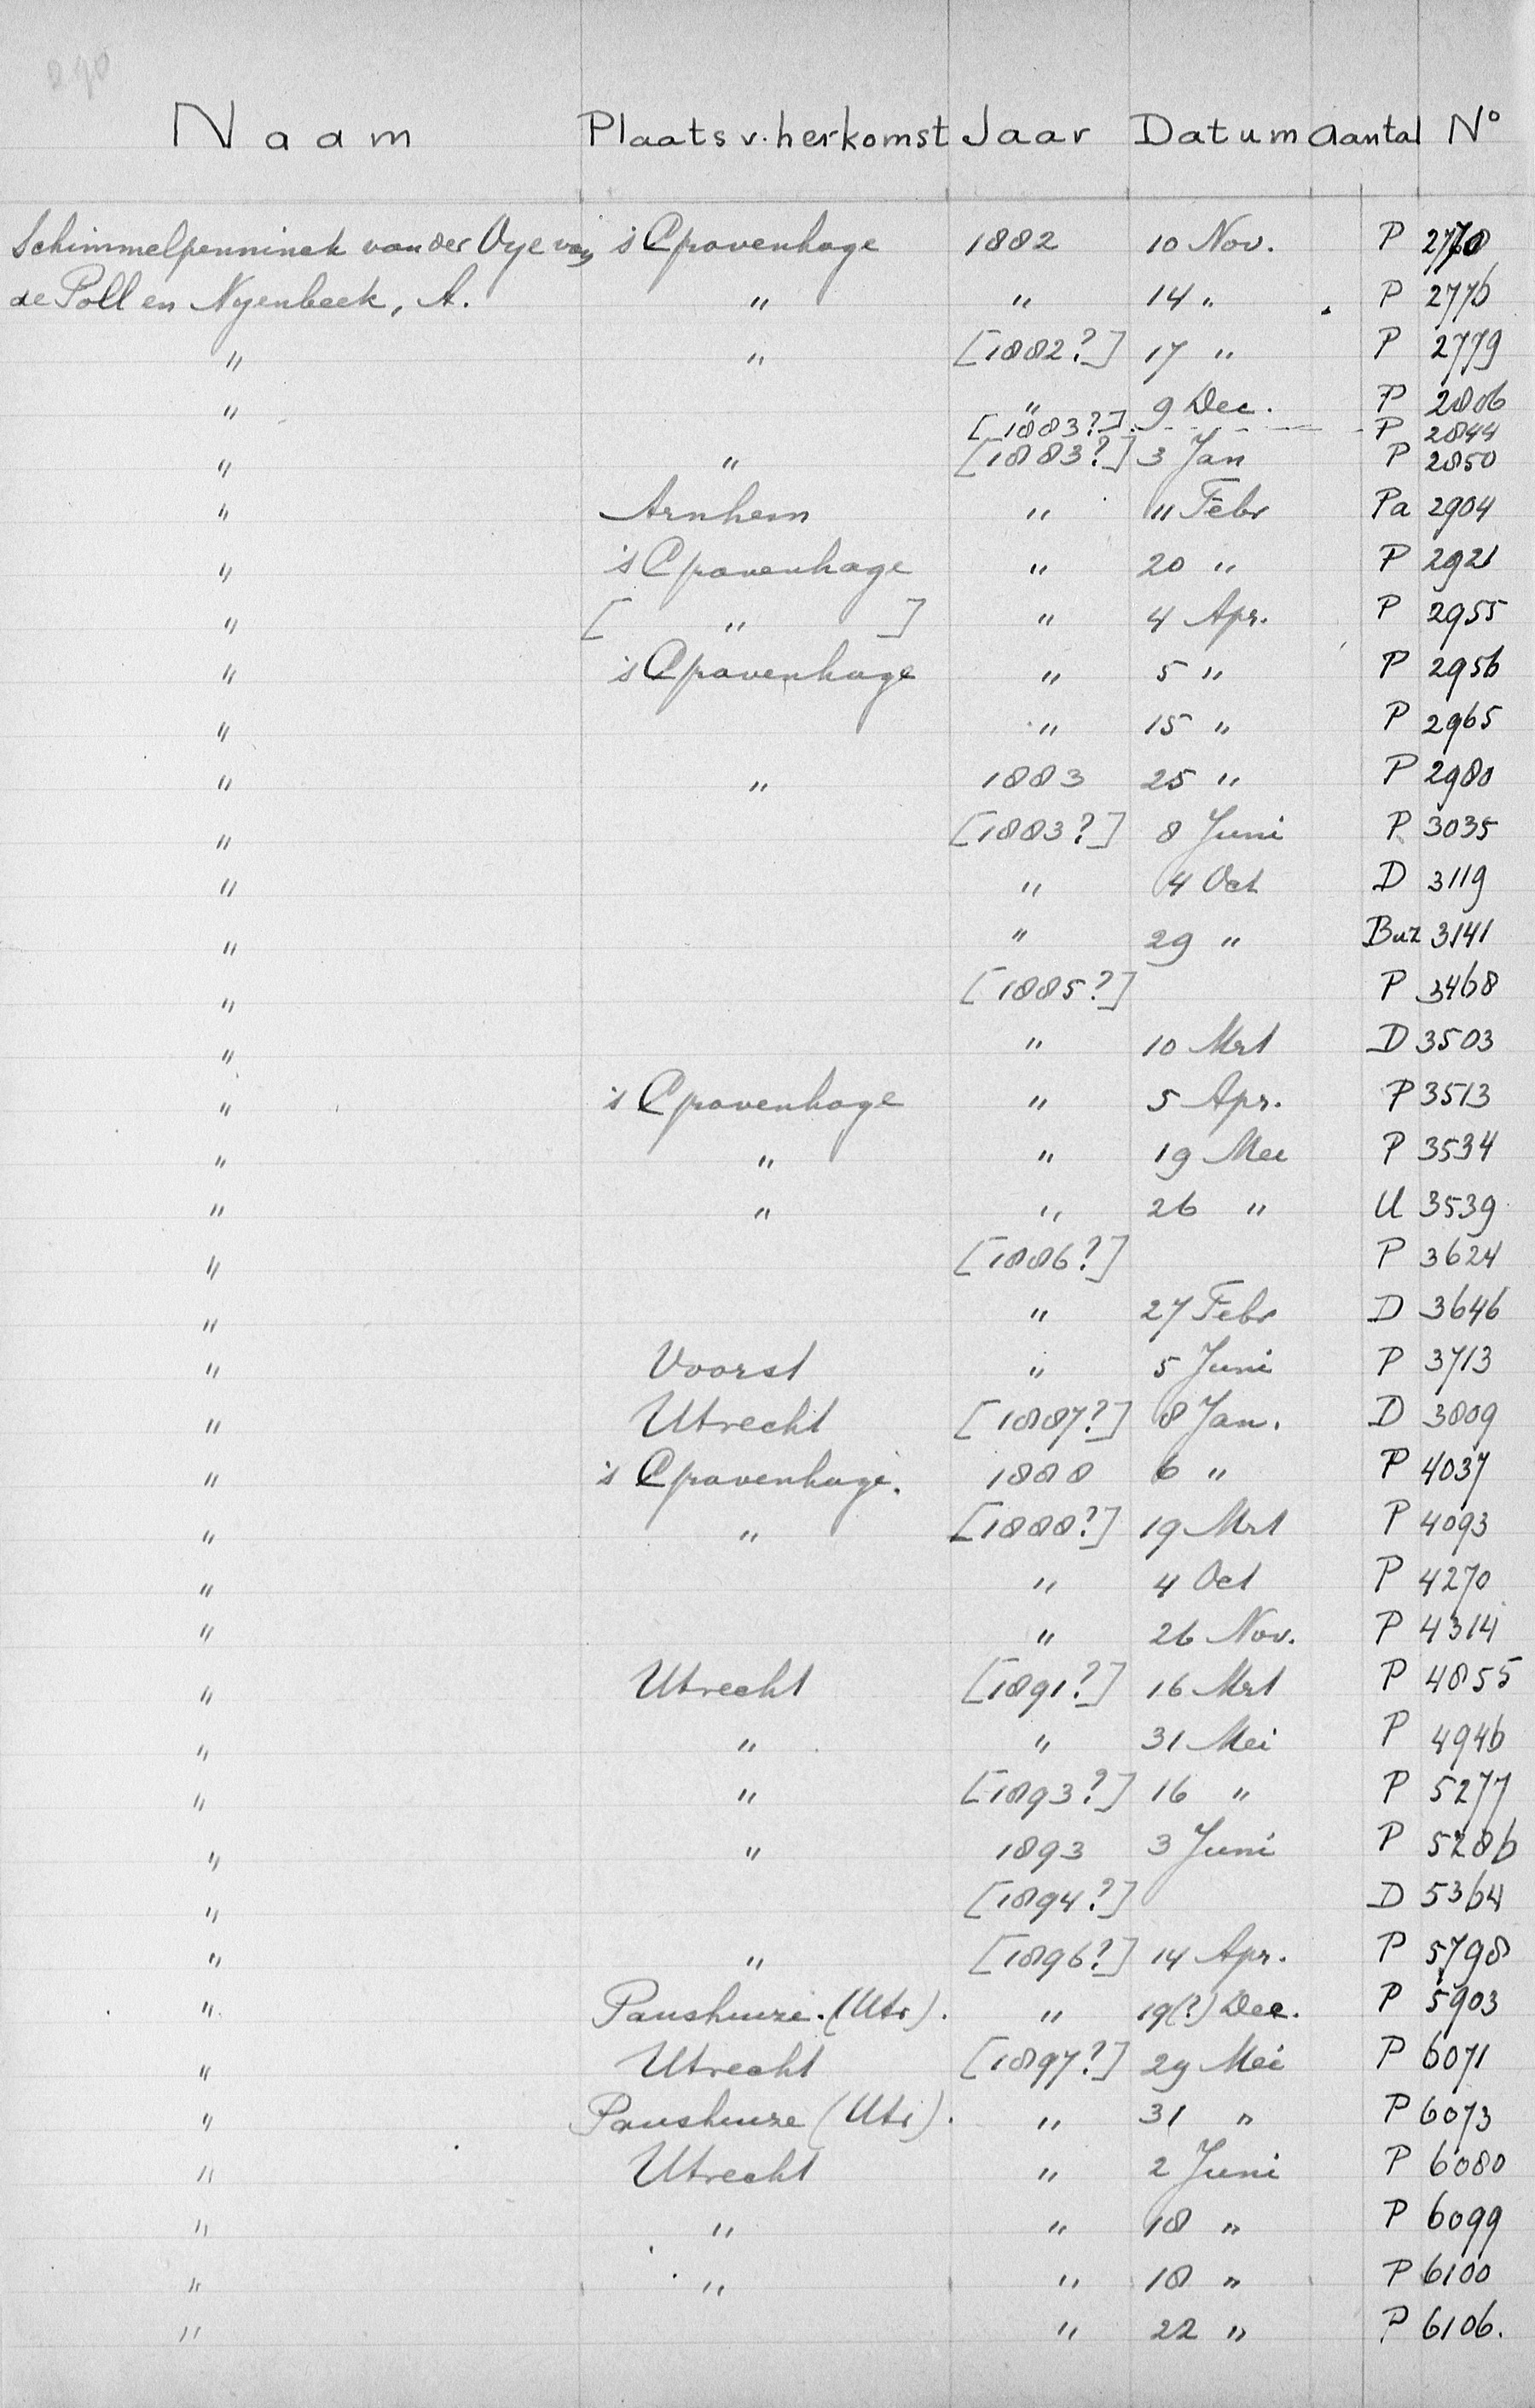 290
Naam Plaats v. herkomst Jaar Datum Aantal No
Schimmelpenninck van der Oye van 's Gravenhage 1882 10 Nov. P 2760
de Poll en Nyenbeek, A. " " 14 " P 2776
" " [1882?] 17 " P 2779
" " 9 Dec. P 2806
[1883?] P 2844
" " [1883?] 3 Jan P 2850
" Arnhem " 11 Febr Pa 2904
" 's Gravenhage " 20 " P 2921
" [ " ] " 4 Apr. P 2955
" 's Gravenhage " 5 " P 2956
" " 15 " P 2965
" " 1883 25 " P 2980
" [1883?] 8 Juni P 3035
" " 4 Oct D 3119
" " 29 " Buz 3141
" [1885?] P 3468
" " 10 Mrt D 3503
" 's Gravenhage " 5 Apr. P 3513
" " " 19 Mei P 3534
" " " 26 " U 3539
" [1886?] P 3624
" " 27 Febr D 3646
" Voorst " 5 Juni P 3713
" Utrecht [1887?] 8 Jan. D 3809
" 's Gravenhage. 1888 6 " P 4037
" " [1888?] 19 Mrt P 4093
" " 4 Oct P 4270
" " 26 Nov. P 4314
" Utrecht [1891?] 16 Mrt P 4855
" " " 31 Mei P 4946
" " [1893?] 16 " P 5277
" " 1893 3 Juni P 5286
" [1894?] D 5364
" " [1896?] 14 Apr. P 5798
" Paushuize. (Utr). " 19(?) Dec. P 5903
" Utrecht [1897?] 29 Mei P 6071
" Paushuize (Utr). " 31 " P 6073
" Utrecht " 2 Juni P 6080
" " " 18 " P 6099
" " " 18 " P 6100
" " 22 " P 6106.